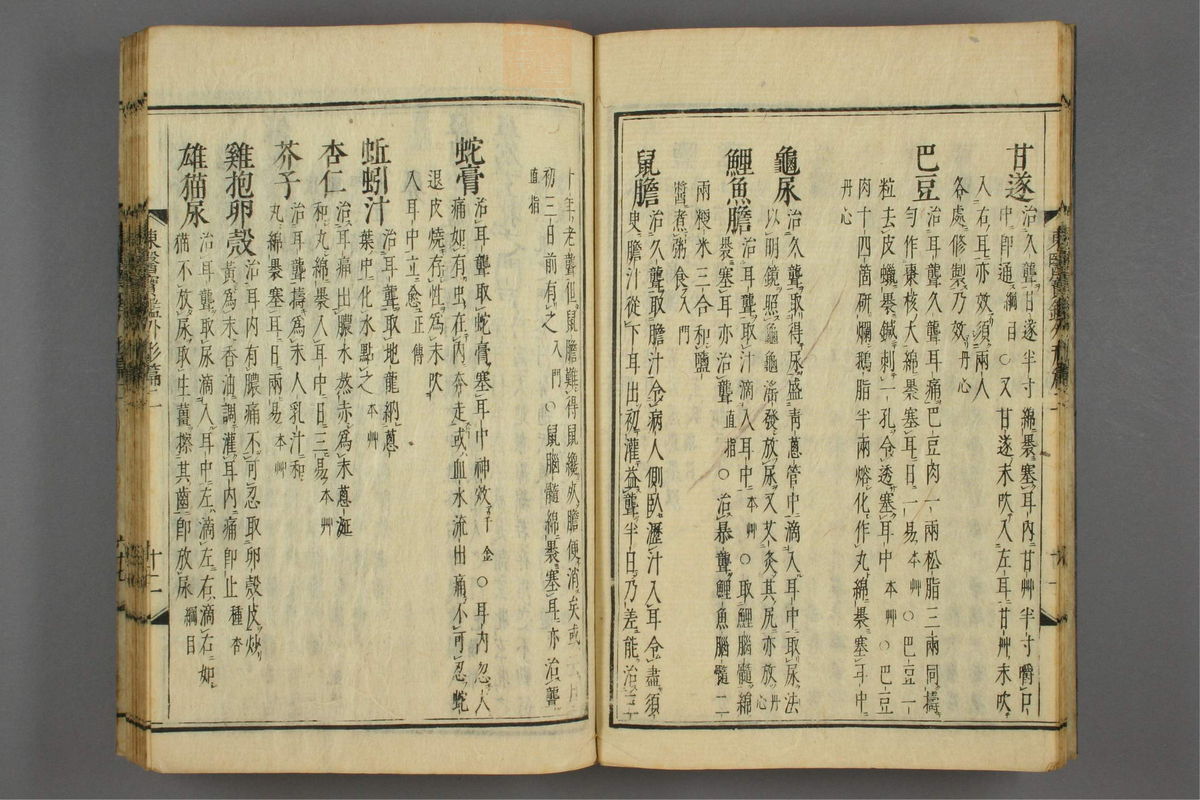 甘遂治久聾甘遂半寸綿裹塞耳內甘艸半寸嚼口
中卽通綱目○又甘遂末吹入左耳甘艸末吹
入右耳亦效須兩人
各處修製乃效丹心
巴豆治耳聾久聾耳痛巴豆肉一兩松脂三兩同擣
勻作棗核大綿裹塞耳日一易本艸○巴豆一
粒去皮蠟裹鍼刺一孔令透塞耳中本艸○巴豆
肉十四箇研爛鵝脂半兩熔化作丸綿裹塞耳中
丹心
龜尿治久聾取得尿盛靑蔥管中滴入耳中取尿法
以明鏡照龜龜淫發放尿又艾灸其尻亦放丹心
鯉魚膽治耳聾取汁滴入耳中本艸○取鯉腦髓綿
裹塞耳亦治聾直指○治暴聾鯉魚腦髓二
兩粳米三合和鹽
醬煮粥食入門
鼠膽治久聾取膽汁令病人側臥瀝汁入耳令盡須
臾膽汁從下耳出初灌益聾半日乃差能治三
十年老聾但鼠膽難得鼠纔死膽便消矣或云月
初三日前有之入門○鼠腦髓綿裹塞耳亦治聾
直指
蛇膏治耳聾取蛇膏塞耳中神效千金○耳內忽大
痛如有虫在內奔走或血水流出痛不可忍蛇
退皮燒存性爲末吹
入耳中立愈正傳
蚯蚓汁治耳聾取地龍納蔥
葉中化水點之本艸
杏仁治耳痛出膿水熬赤爲末蔥涎
和丸綿裹入耳中日三易本艸
芥子治耳聾擣爲末人乳汁和
丸綿裹塞耳日兩易本艸
雞抱卵殼治耳內有膿痛不可忍取卵殼皮炒
黃爲末香油調灌耳內痛卽止種杏
雄猫尿治耳聾取尿滴入耳中左滴左右滴右如
猫不放尿取生薑擦其齒卽放尿綱目
東醫寶鑑外形篇二
十二